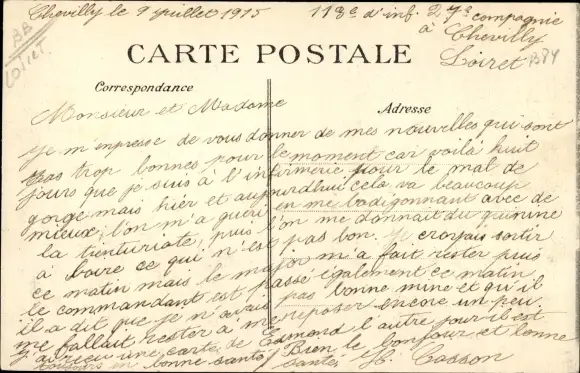 Chevilly le 9 juillet 1915
118e d'inf. 27e compagnie
à Chevilly
Loiret
BB
LOIRET
CARTE POSTALE
Correspondance
Adresse
Monsieur et Madame
Je m'enpresse de vous donner de mes nouvelles qui sont
pas trop bonnes pour le moment car voilà huit
jours que je suis à l'infirmerie pour le mal de
gorge mais hier et aujourdhui cela va beaucoup
mieux l'on m'a guéri en me badigonnant avec de
la tienturiate, puis l'on me donnait du quinine
à boire ce qui n'est pas bon. Je croyais sortir
ce matin mais le major m'a fait rester puis
le commandant est passé également ce matin
il a dit que je n'avais pas bonne mine et qu'il
me fallait rester à me reposer encore un peu.
J'ai reçu une carte de Edmond l'autre jour il est
toujours en bonne santé. Bien le bonjour et bonne
santée